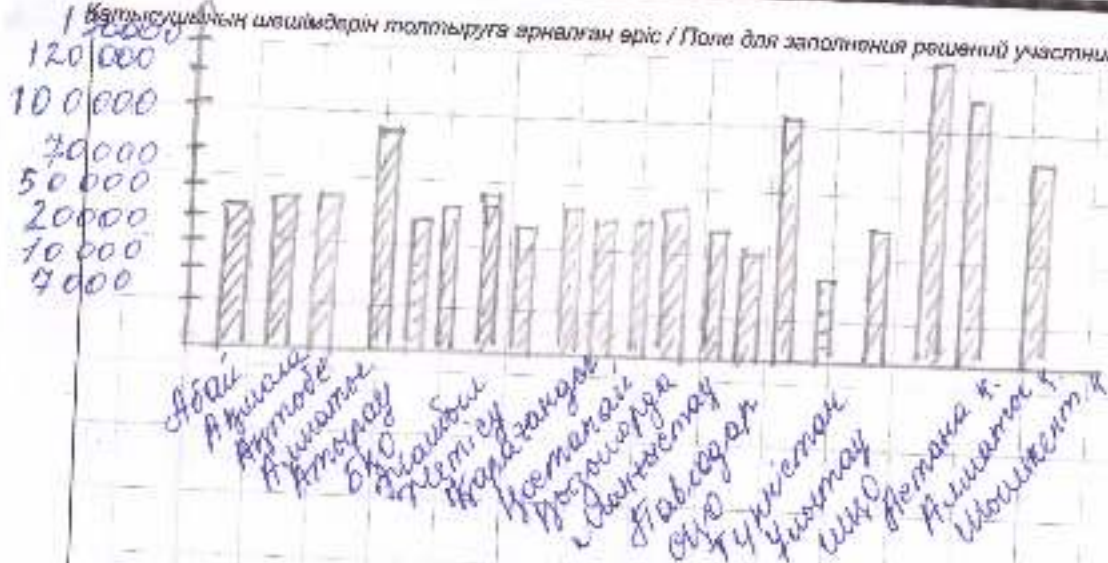 Қатысушының шешімдерін толтыруға арналған өріс / Поле для заполнения решений участни
120 000
100 000
70000
50 000
20000
10 000
7000
Абай
Ақмола
Ақтөбе
Алматы
Атырау
БҚО
Жамбыл
Жетісу
Қарағанды
Қостанай
Қызылорда
Маңғыстау
Павлодар
СҚО
Түркістан
Ұлытау
ШҚО
Астана қ.
Алматы қ.
Шымкент қ.